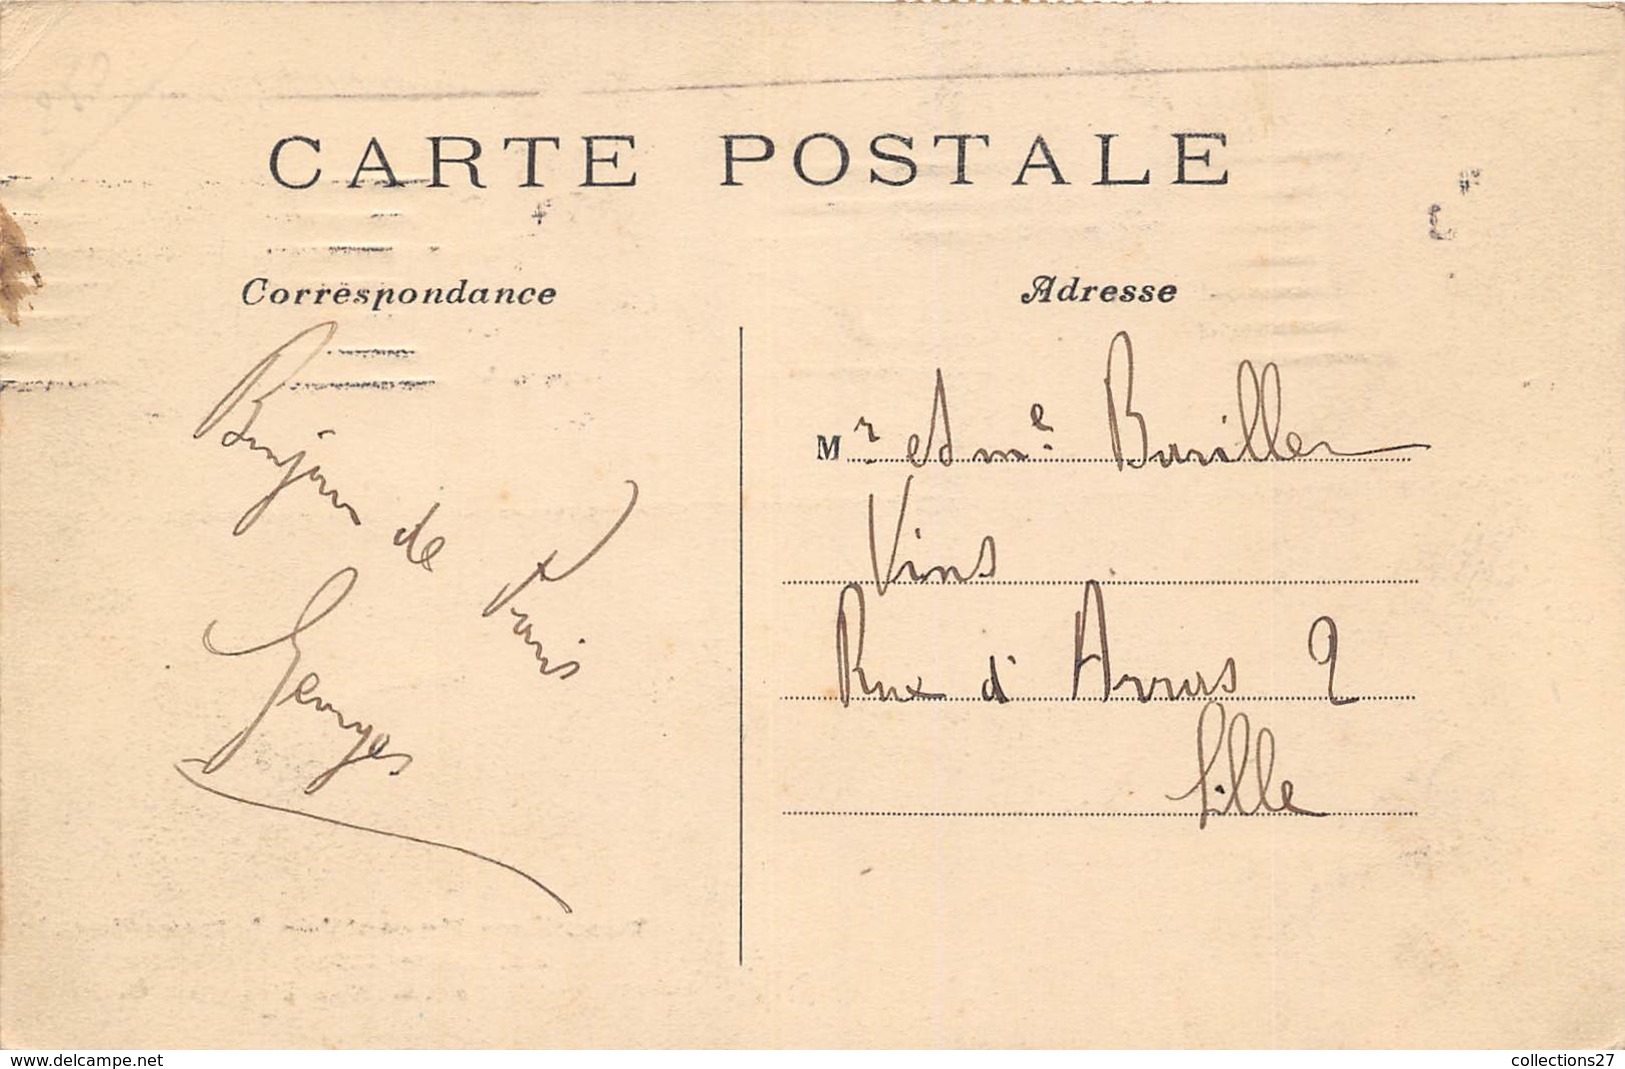 CARTE POSTALE
Correspondance
Adresse
Bonjour de Paris
Georges
Mr et Me Buriller
Vins
Rue d'Arras 2
Lille
www.delcampe.net
collections27